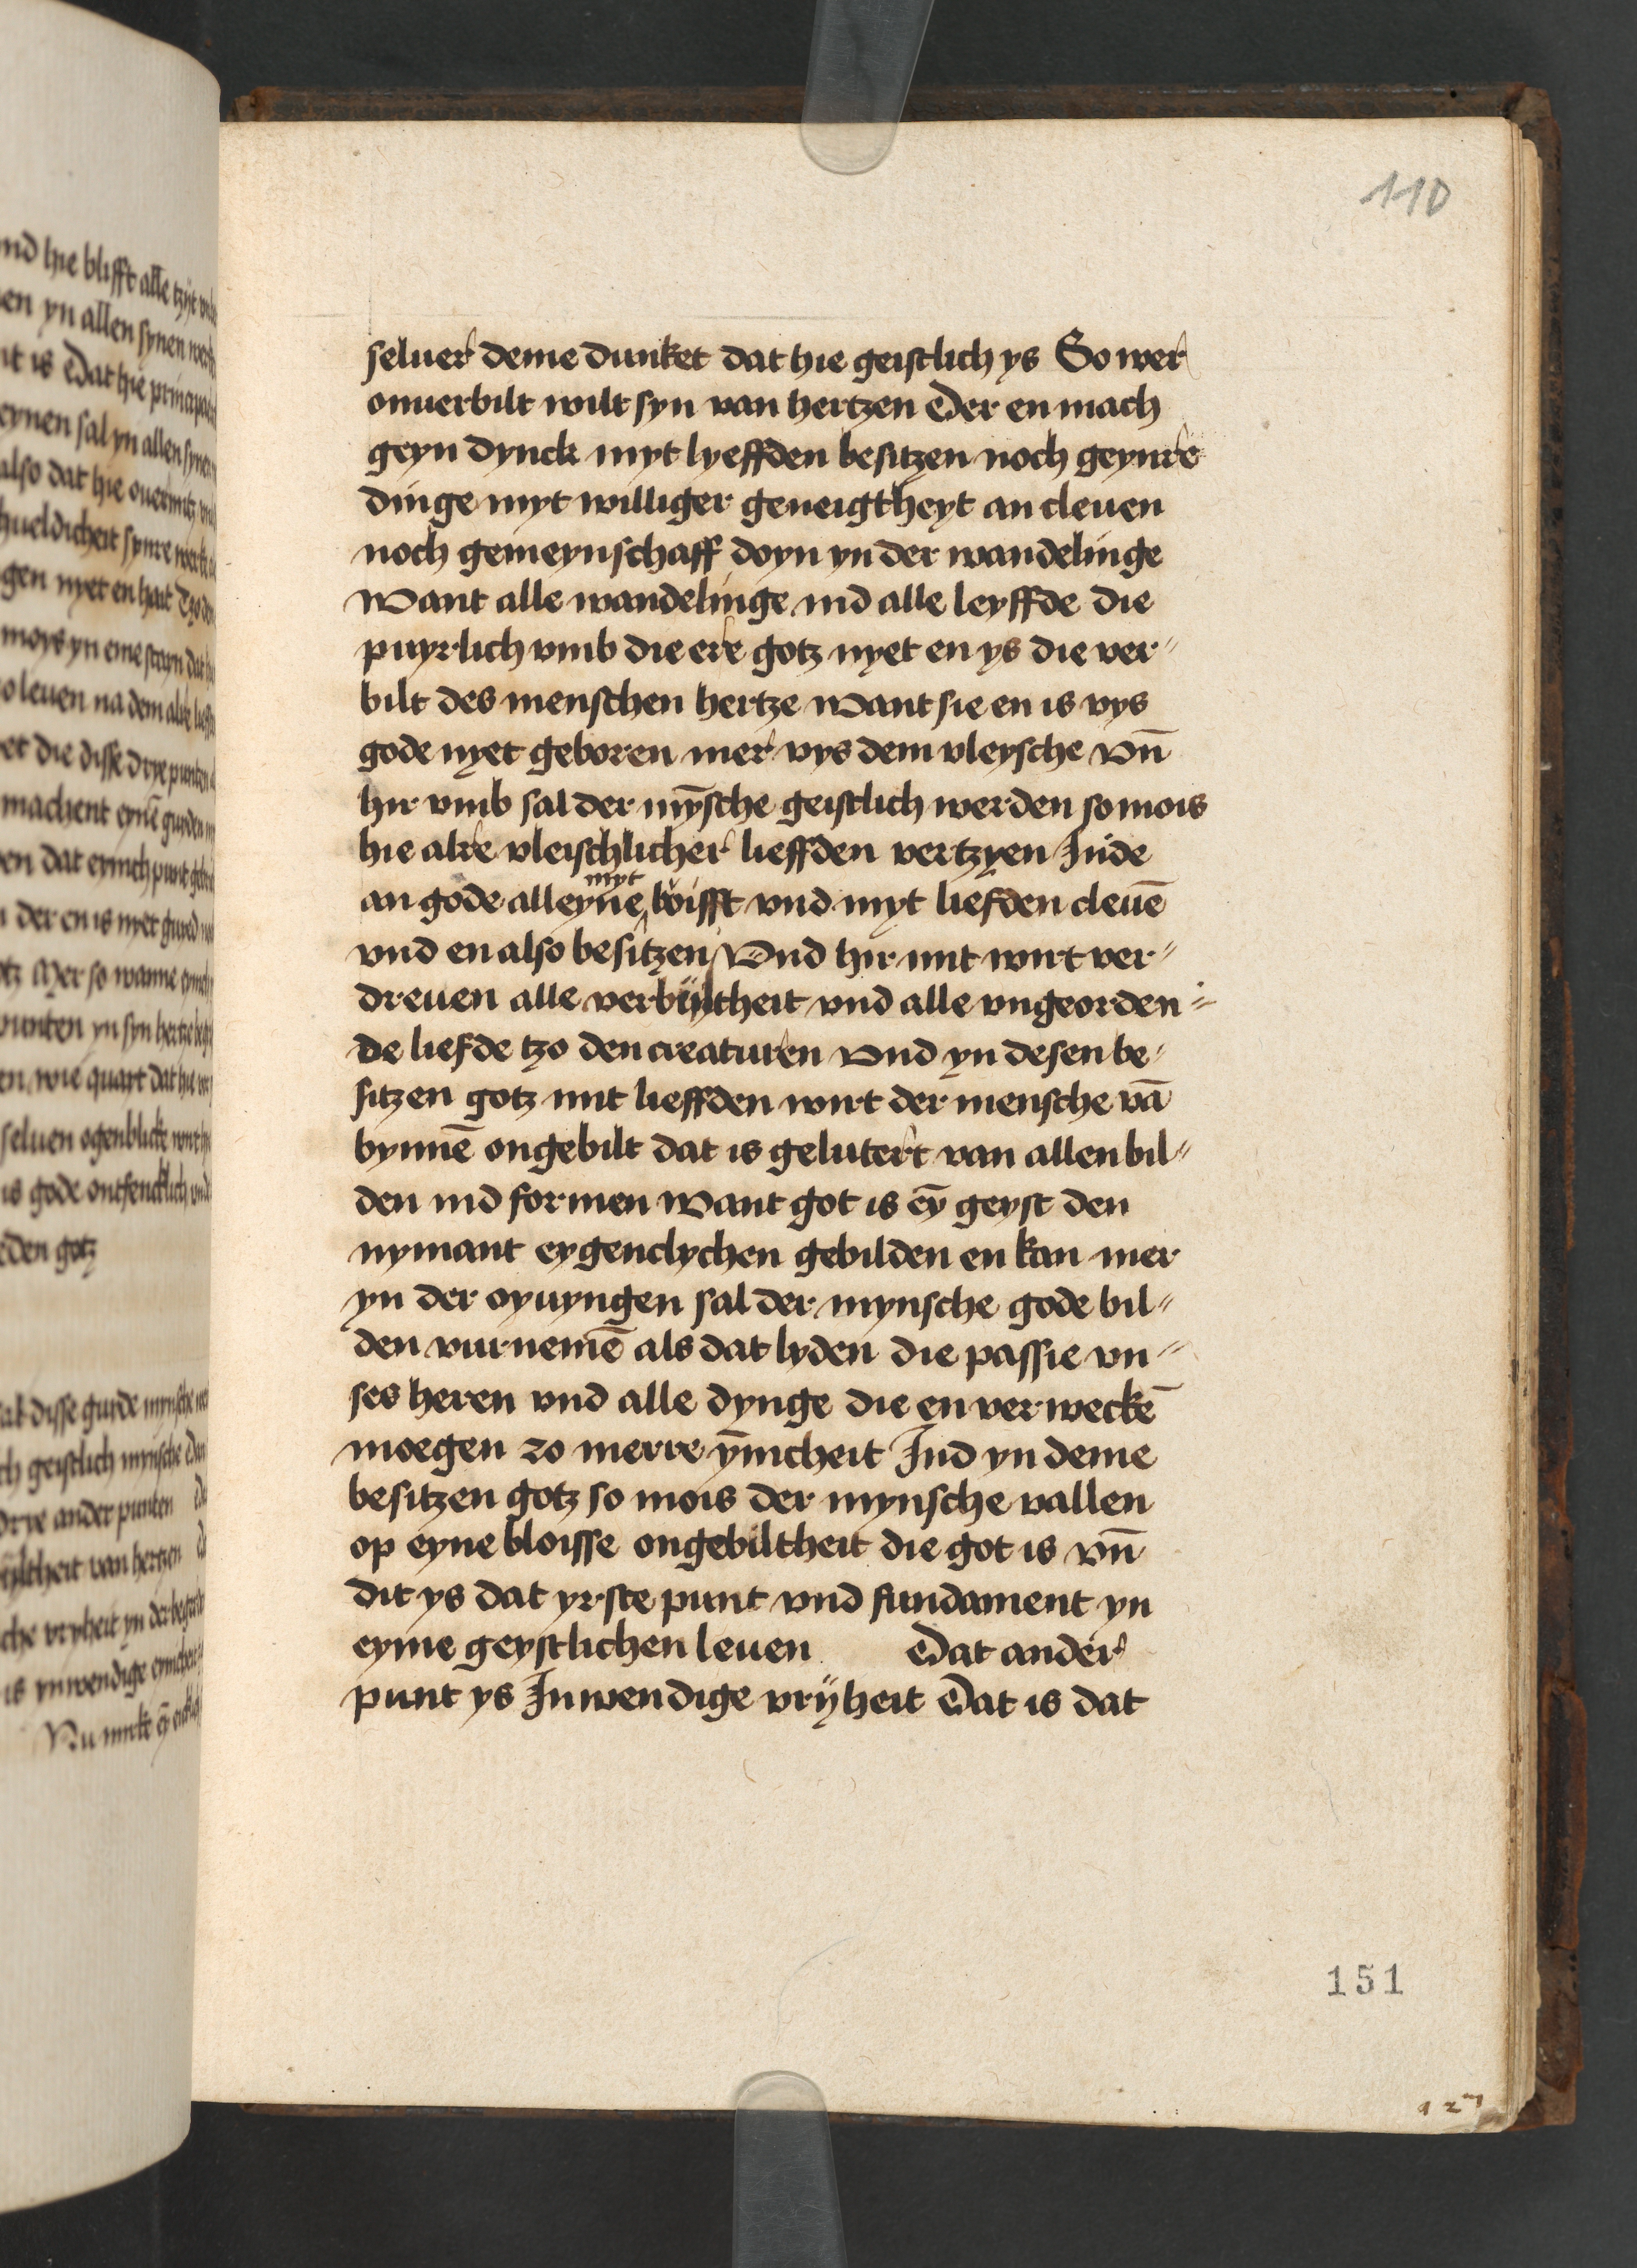 110
seluer deme dunket dat hie geistlich ys So wer
onuerbilt wilt syn van hertzen Der en mach
geyn dynck myt lyeffden besitzen noch geynre
dinge myt williger geneigtheyt an cleuen
noch gemeynschaff doyn yn der wandelinge
Want alle wandelinge ind alle leyffde die
puyrlich vmb die ere gotz nyet en ys die ver〃
bilt des menschen hertze Want sie en is vys
gode nyet geboren mer vys dem vleysche Vn̄
hir vmb sal der mȳsche geistlich werden so mois
hie alre vleischlicher lieffden vertzyen Inde
an gode alleyne myt loifft vnd myt liefden cleuē
vnd en also besitzen Vnd hir mit wirt ver〃
dreuen alle verbiltheit vnd alle vngeorden〃
de liefde tzo den creaturen Vnd yn desen be〃
sitzen gotz mit lieffden wirt der mensche vā
bynnē ongebilt dat is gelutert van allen bil〃
den ind formen Want got is eȳ geyst den
nymant eygenclychen gebilden en kan mer
yn der oyuyngen sal der mynsche gode bil〃
den vurnemē als dat lyden die passie vn〃
ses heren vnd alle dynge die en verweckē
moegen zo merre ȳnicheit Ind yn deme
besitzen gotz so mois der mynsche vallen
op eyne bloisse ongebiltheit die got is vn̄
dit ys dat yrste punt vnd fundament yn
eyme geystlichen leuen Dat ander
punt ys Inwendige vrÿheit Dat is dat
151